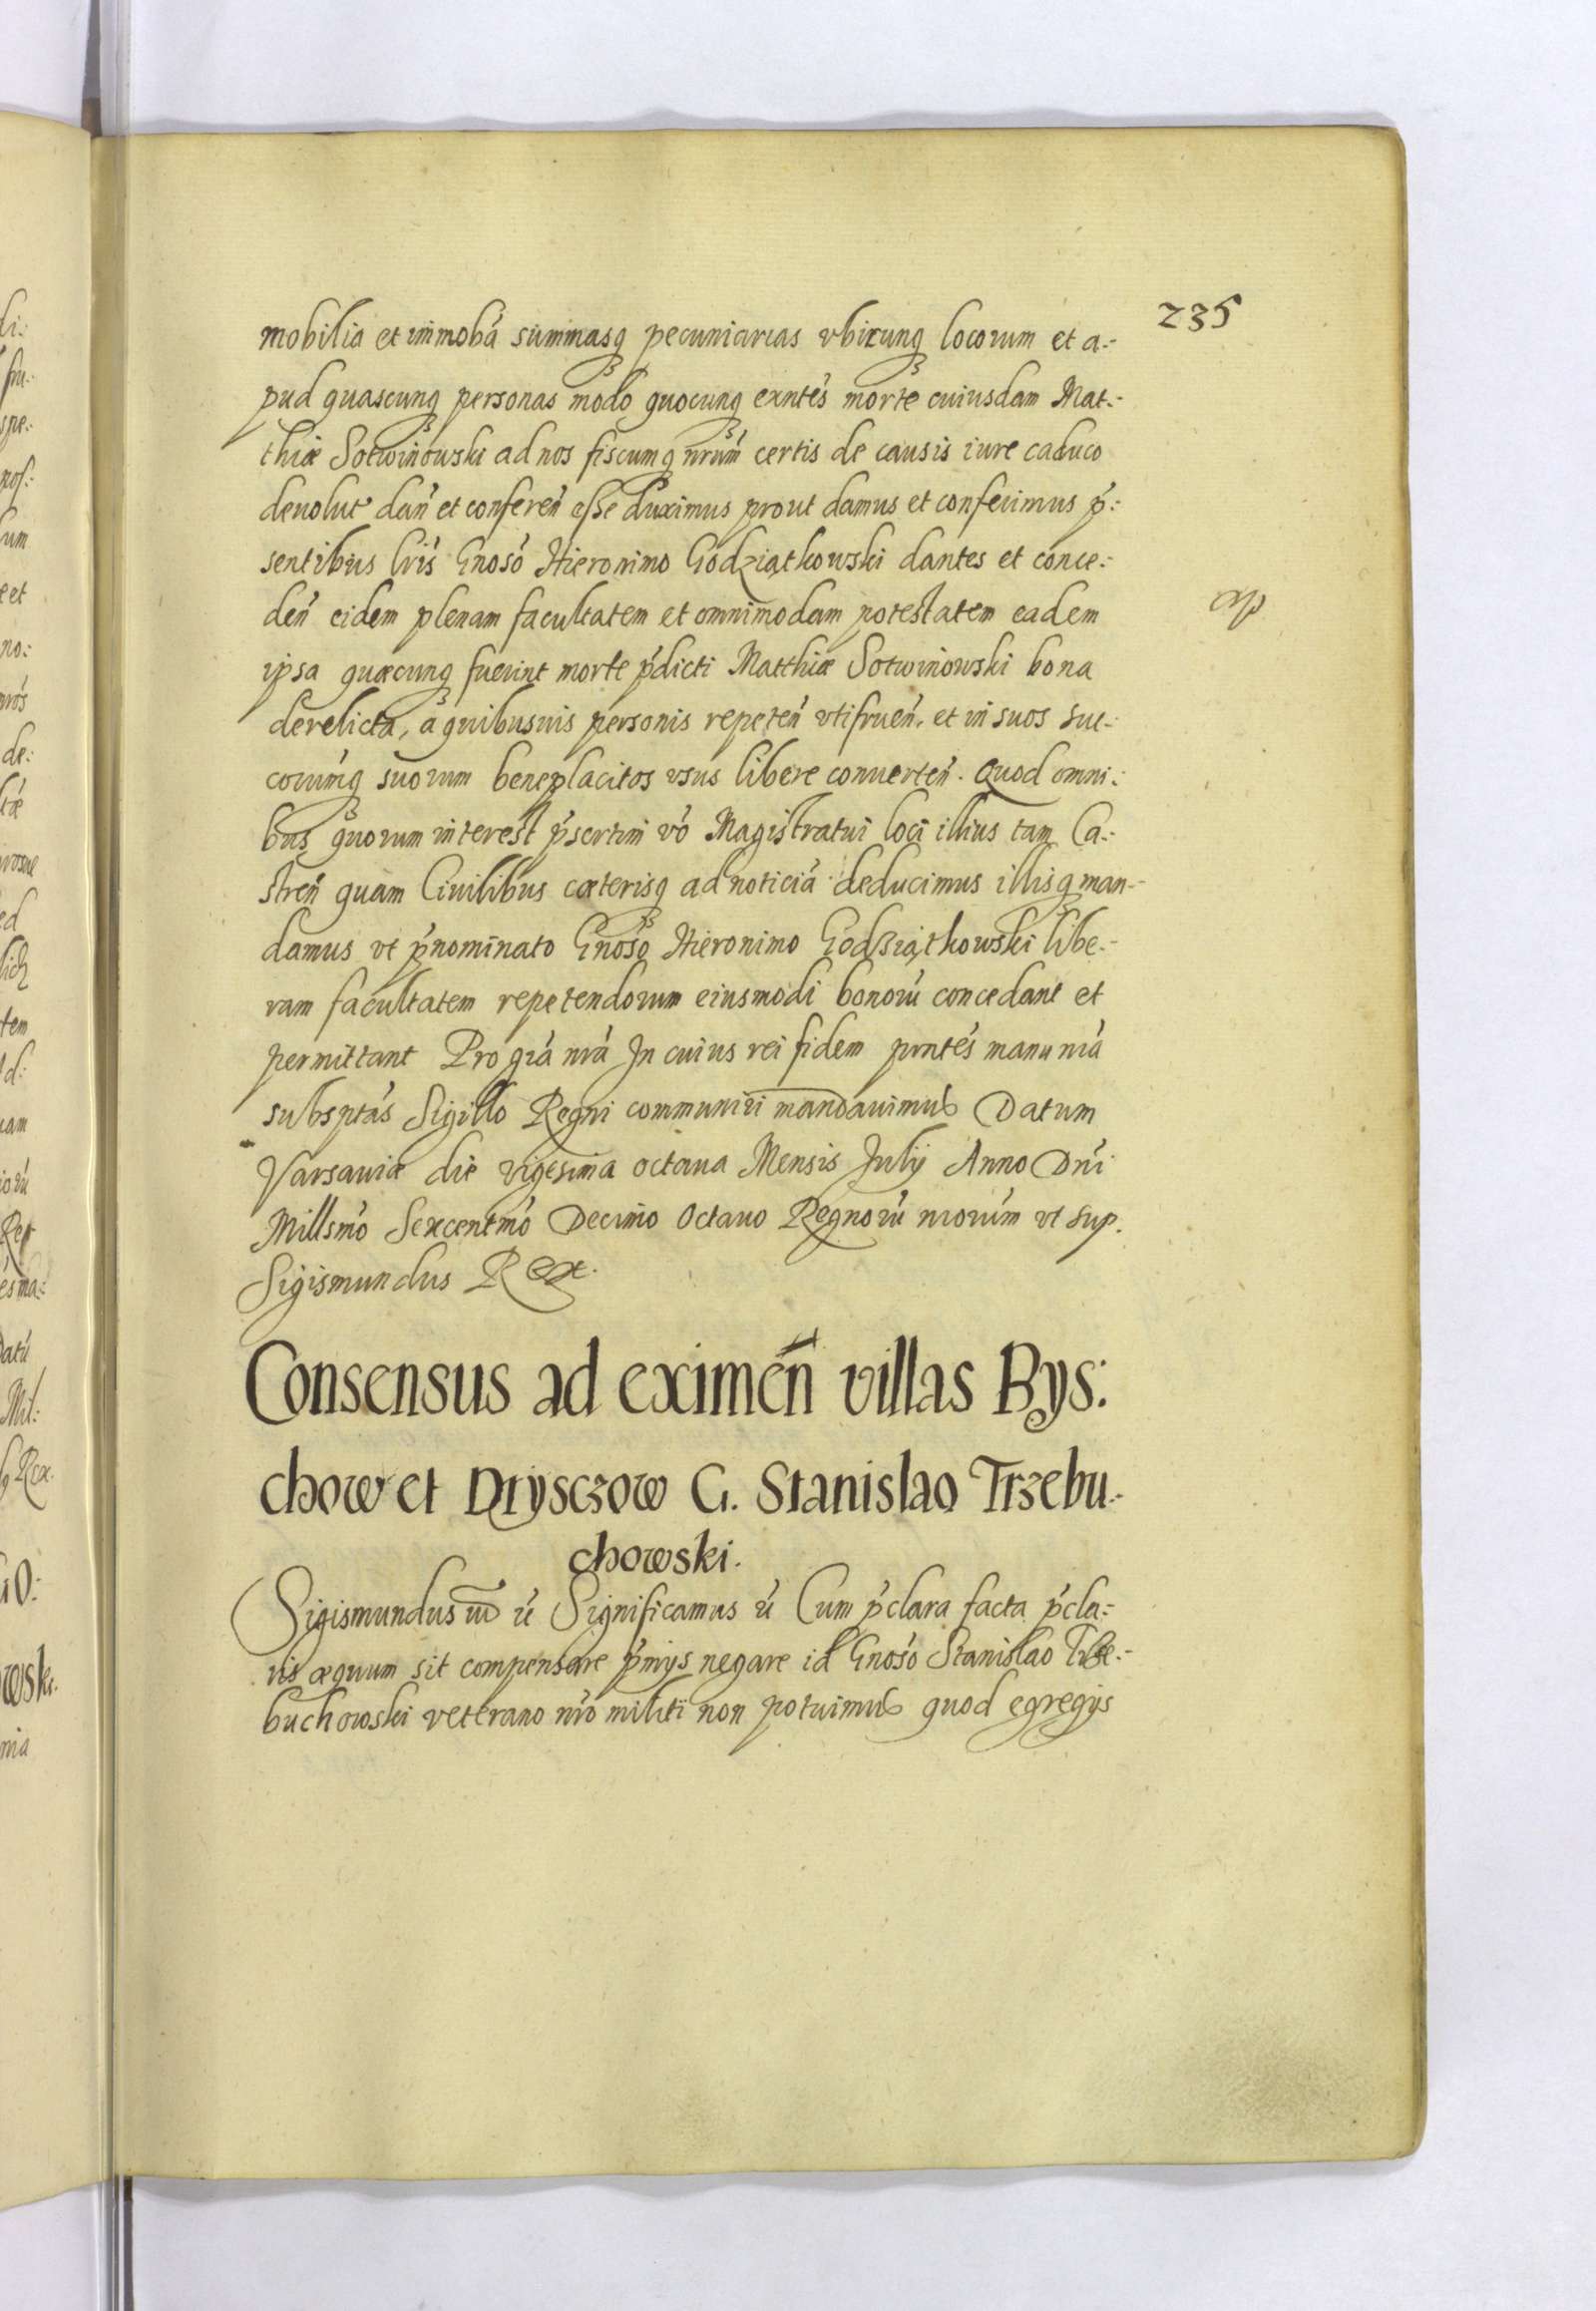 235
mobilia et immobá summasqꝫ pecuniarias vbicunqꝫ locorum et a-
pud quascunqꝫ personas modo quocunqꝫ exntés morte cuiusdam Mat-
thiæ Sotwinowski ad nos fiscumqꝫ nrúm certis de causis iure caduco
deuolut dań et confereń esse duximus prout damus et conferimus ṕ:
sentibus lrís Gnosó Hieronimo Godziątkowski dantes et conce:
deń eidem plenam facultatem et omnimodam potestatem eadem
ipsa quæcunqꝫ fuerint morte ṕdicti Matthiæ Sotwinowski bona
derelicta, á quibusuis personis repeteń vtifrueń, et in suos suc-
corúmqꝫ suorum beneplacitos vsus libere conuerteń. Quod omni:
bus quorum interest ṕsertim vó Magistratui loci illius tam Ca-
streń quam Ciuilibus cæterisqꝫ ad noticiá deducimus illisqꝫ man-
damus vt ṕnominato Gnosó Hieronimo Godziątkowski libe-
ram facultatem repetendorum eiusmodi bonorú concedant et
permittant Pro grá nrá In cuius rei fidem prntés manu nrá
subsptás Sigillo Regni communiri mandauimus Datum
Varsauiæ die vigesima octaua Mensis Julij Anno Dní
Millsmó Sexcentmó Decimo Octauo Regnorú nrorúm vt sup.
Sigismundus Rex.
Consensus ad eximeń villas Bys:
chow et Drysczow G. Stanislao Trzebu-
chowski.
Sigismundus III ú Significamus ú Cum ṕclara facta ṕcla:
ris æquum sit compensare ṕmijs negare id Gnosó Stanislao Trze-
buchowski veterano nró militi non potuimus quod egregijs